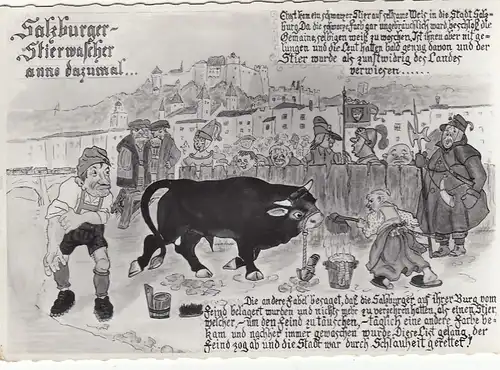 Salzburger
Stierwascher
anno dazumal...
Einst kam ein schwarzer Stier auf seltsame Weis in die Stadt Salz-
burg. Da die schwarze Farb gar ungebräuchlich ward, beschloß die
Gemaine, selbigen weiß zu waschen. Ist ihnen aber nit ge-
lungen und die Leut hatten bald genug davon und der
Stier wurde als zunftwidrig des Landes
verwiesen......
Die andere Fabel besaget, daß die Salzburger auf ihrer Burg vom
Feind belagert wurden und nichts mehr zu verzehren hatten, als einen Stier
welcher, – um den Feind zu täuschen, – täglich eine andere Farbe be-
kam und nachher immer gewaschen wurde. Diese List gelang, der
Feind zog ab und die Stadt war durch Schlauheit gerettet!